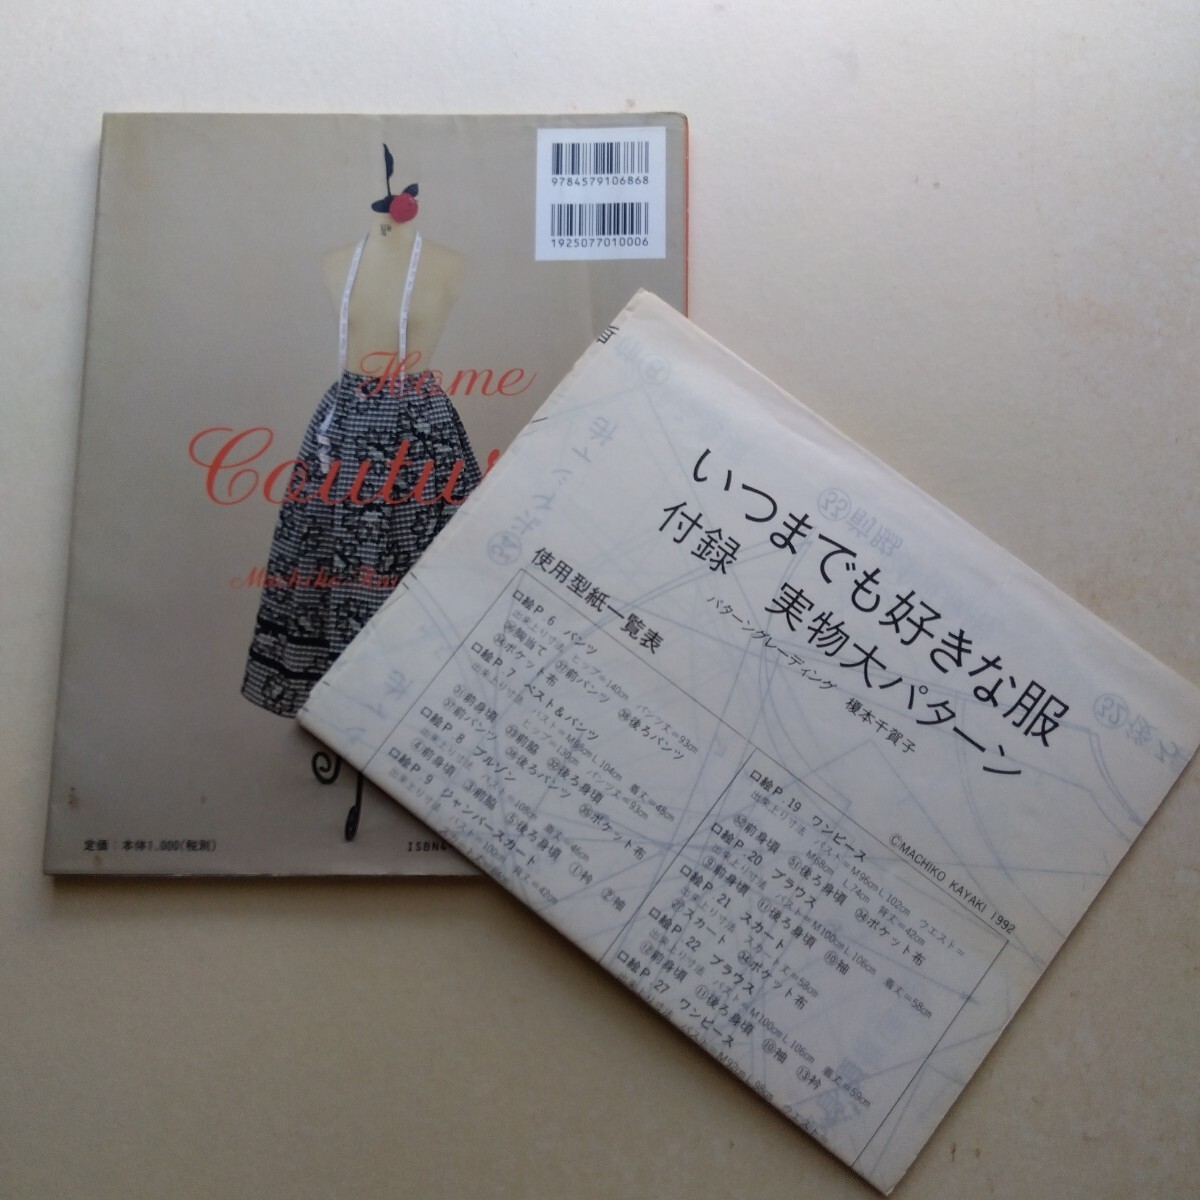 9784579106868
1925077010006
Home
Coutu
Machiko
定価:本体1,000(税別)
ISBN4
いつまでも好きな服
付録 実物大パターン
パターングレーディング 榎本千賀子
©MACHIKO KAYAKI 1992
使用型紙一覧表
口絵P. 6 パンツ
出来上り寸法 ヒップ=140cm パンツ丈=93cm
㊱胸当て ㊲前パンツ ㊳後ろパンツ
㉞ポケット布
口絵P. 7 ベスト&パンツ
出来上り寸法 バスト=M98cm L104cm 着丈=48cm
ヒップ=130cm パンツ丈=93cm
㉛前身頃 ㉝前脇 ㉜後ろ身頃
㊲前パンツ ㊳後ろパンツ ㉟ポケット布
口絵P. 8 ブルゾン
出来上り寸法 バスト=108cm 着丈=46cm
④前身頃 ③前脇 ⑤後ろ身頃 ①衿 ②袖
口絵P. 9 ジャンパースカート
出来上り寸法 バスト=100cm 背丈=42cm
口絵P. 19 ワンピース
出来上り寸法 バスト=M96cm L102cm ウエスト=
M68cm L74cm 背丈=42cm
㊿前身頃 �51後ろ身頃 ㉞ポケット布
口絵P. 20 ブラウス
出来上り寸法 バスト=M100cm L106cm 着丈=58cm
⑨前身頃 ⑪後ろ身頃 ⑩袖
口絵P. 21 スカート
出来上り寸法 スカート丈=58cm
㉗スカート ㉞ポケット布
口絵P. 22 ブラウス
出来上り寸法 バスト=M100cm L106cm 着丈=59cm
⑫前身頃 ⑪後ろ身頃 ⑩袖 ⑬衿
口絵P. 27 ワンピース
出来上り寸法 バスト=M92cm L98cm ウエスト